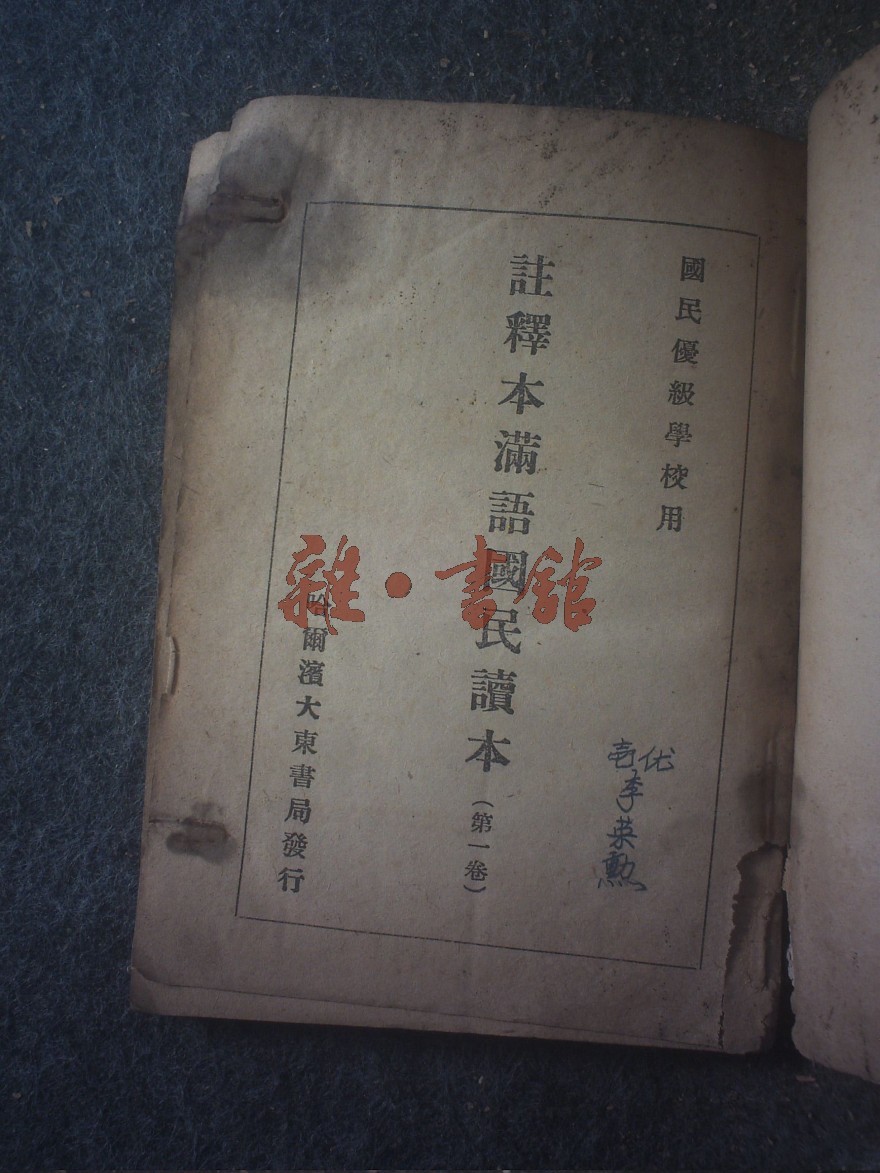 國民優級學校用
註釋本滿語國民讀本（第一卷）
哈爾濱大東書局發行
优
壱李英勲
雜·書館